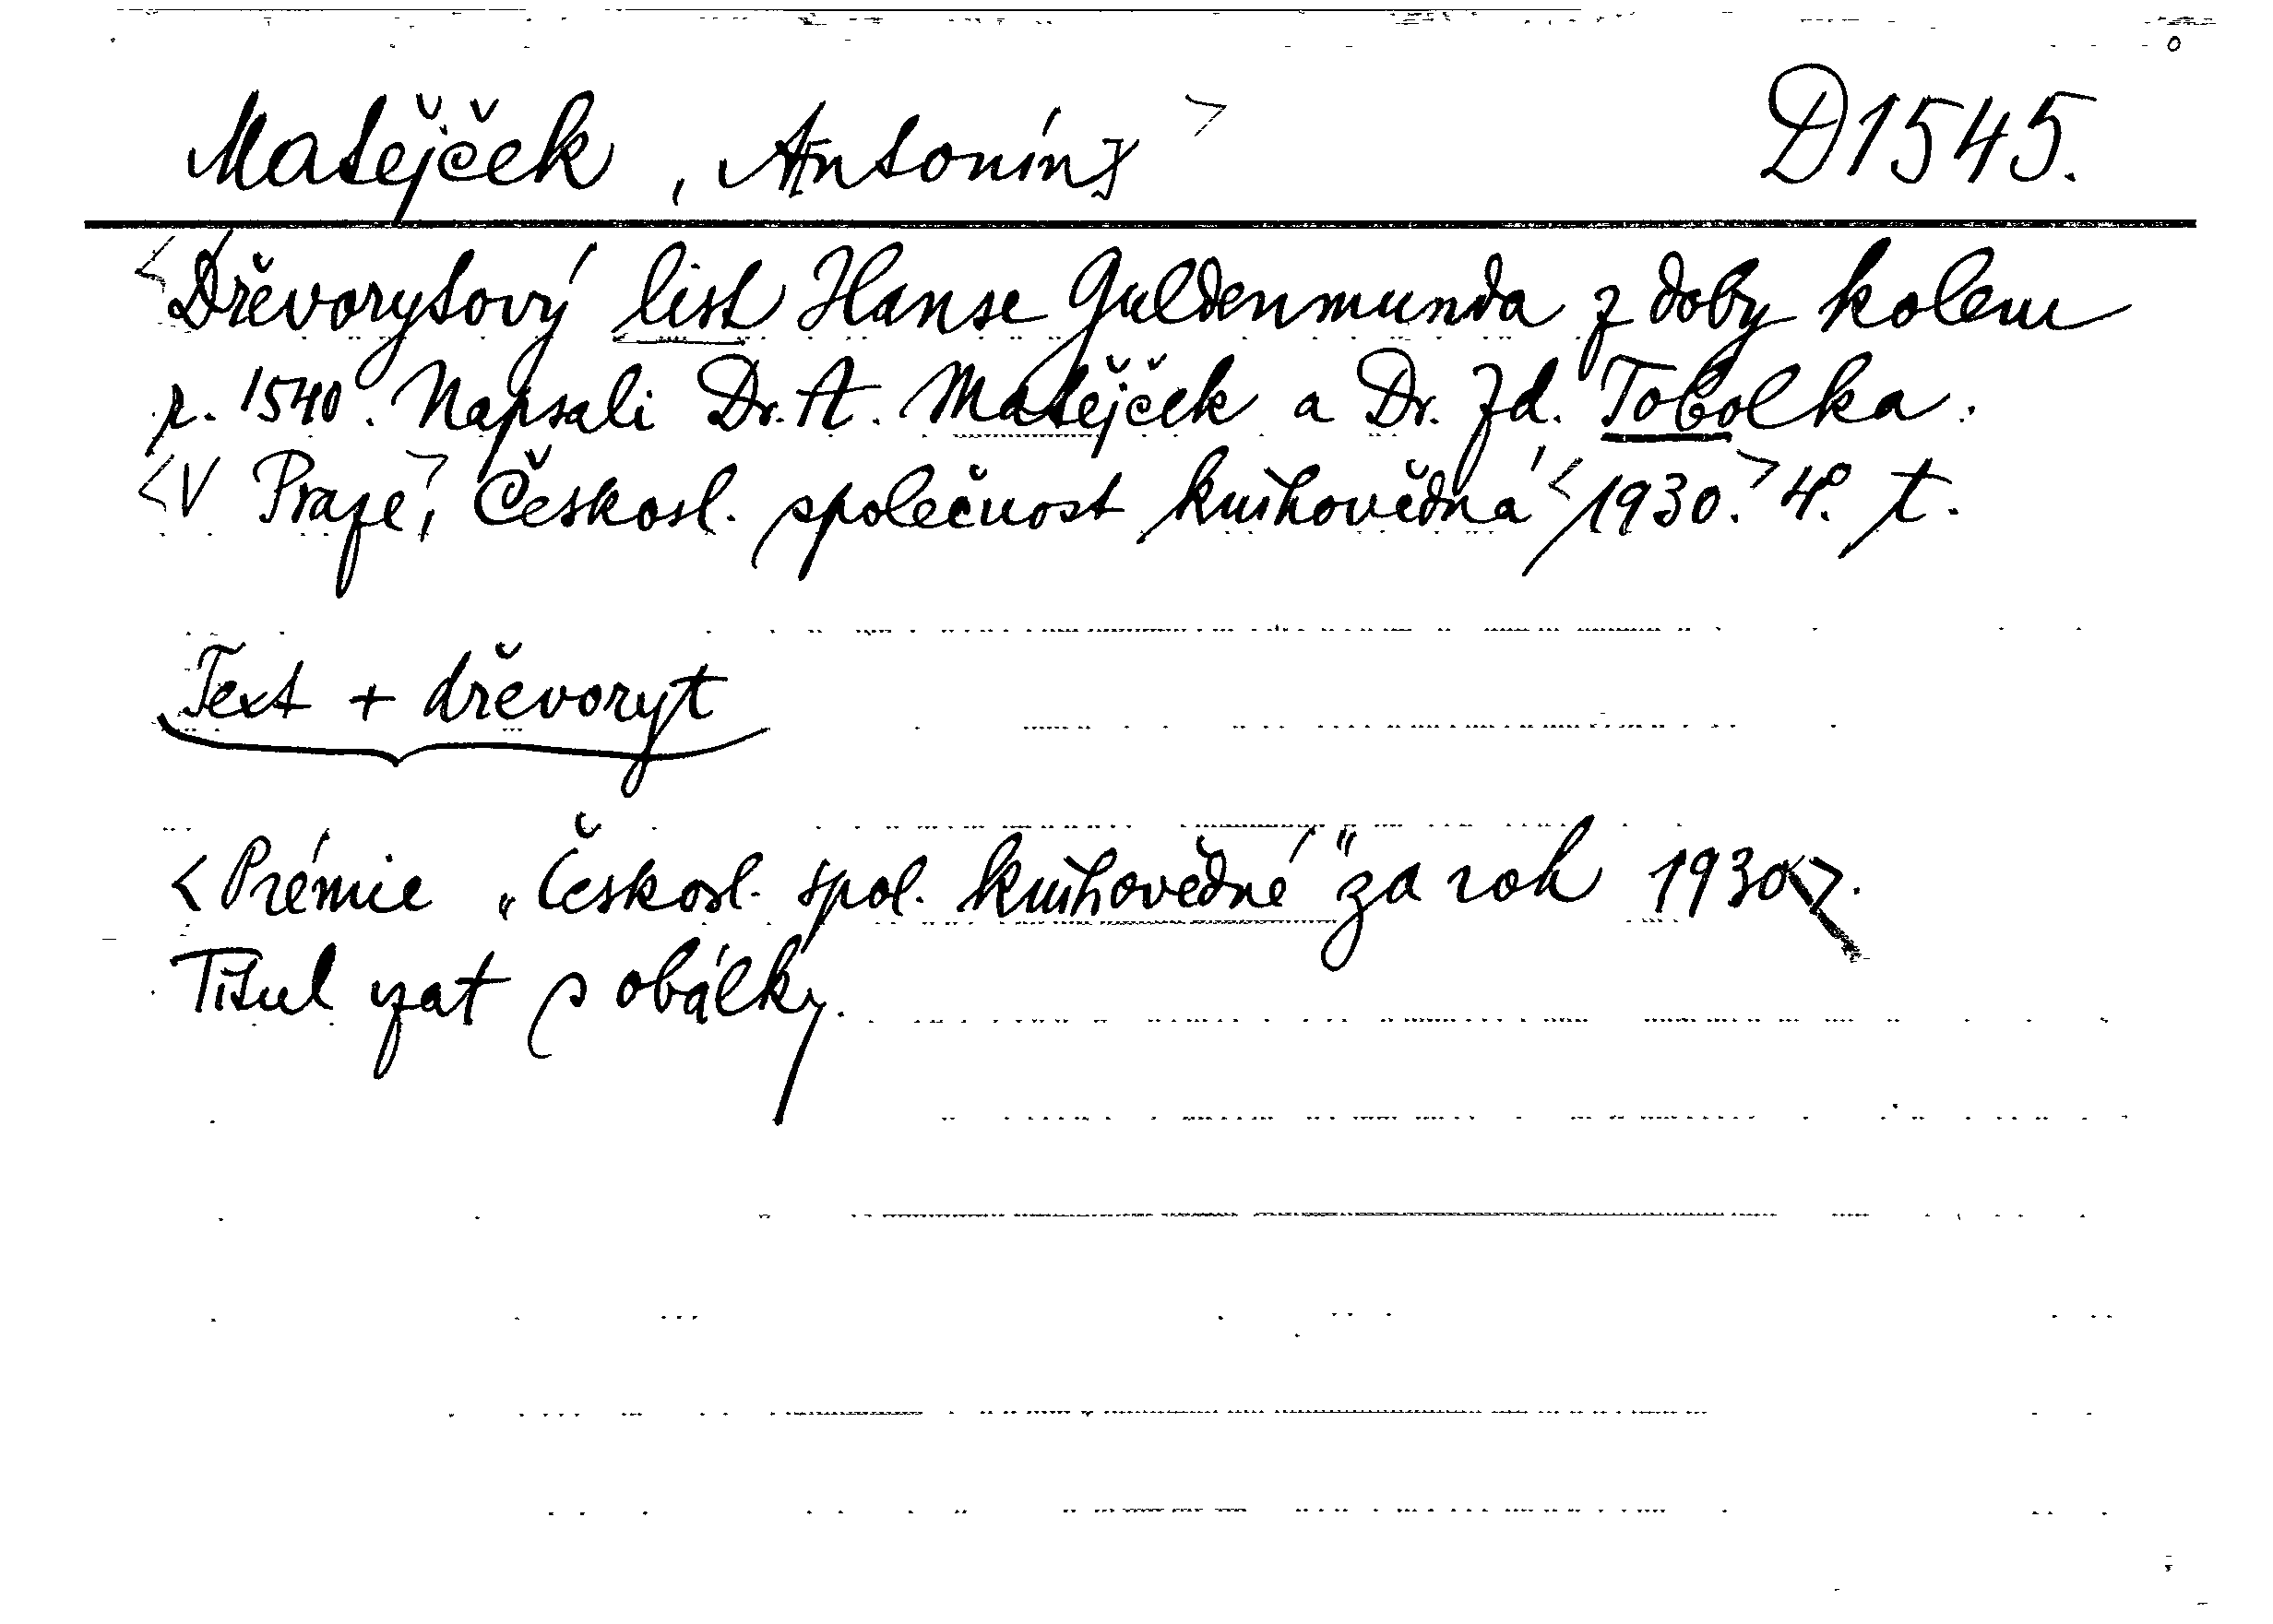 Matějček, Antonín] > D1545.
<Dřevorytový list Hanse Guldenmunda z doby kolem
r. 1540. Napsali Dr. A. Matějček a Dr. Zd. Tobolka.
<V Praze,> Českosl. společnost knihovědná <1930.> 4°. t.
Text + dřevoryt
<Prémie „Českosl. spol. knihovědné" za rok 1930>.
Titul vzat s obálky.